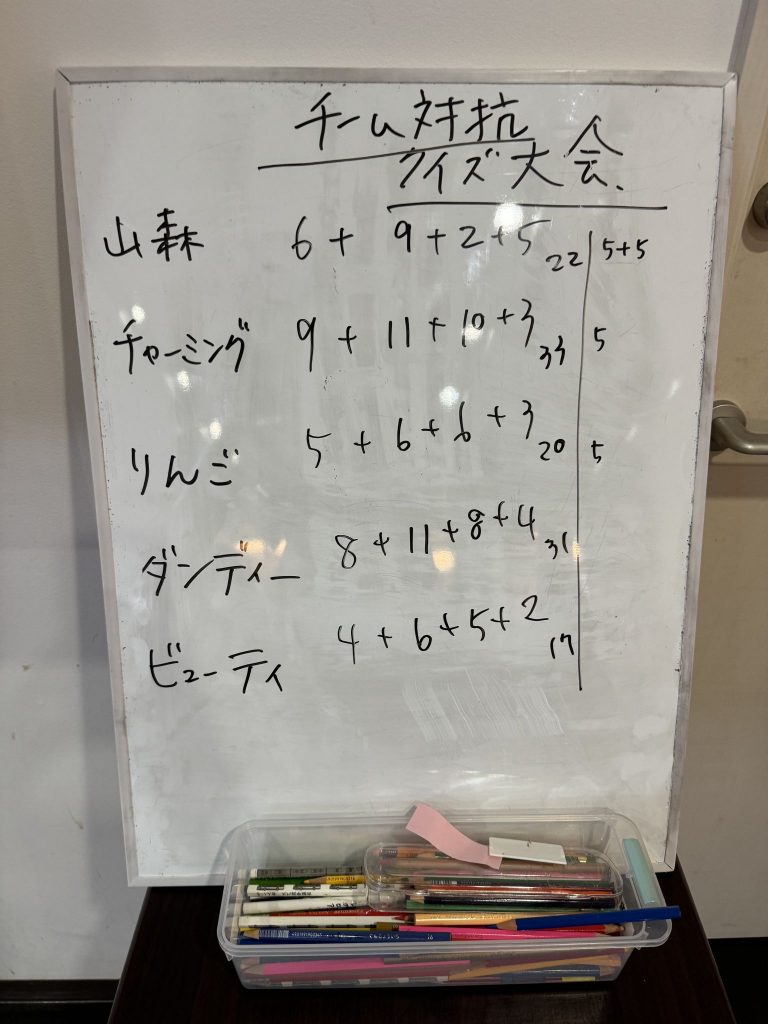 チーム対抗
クイズ大会
山森 6 + 9 + 2 + 5 22 | 5+5
チャーミング 9 + 11 + 10 + 3 33 | 5
りんご 5 + 6 + 6 + 3 20 | 5
ダンディー 8 + 11 + 8 + 4 31
ビューティ 4 + 6 + 5 + 2 17